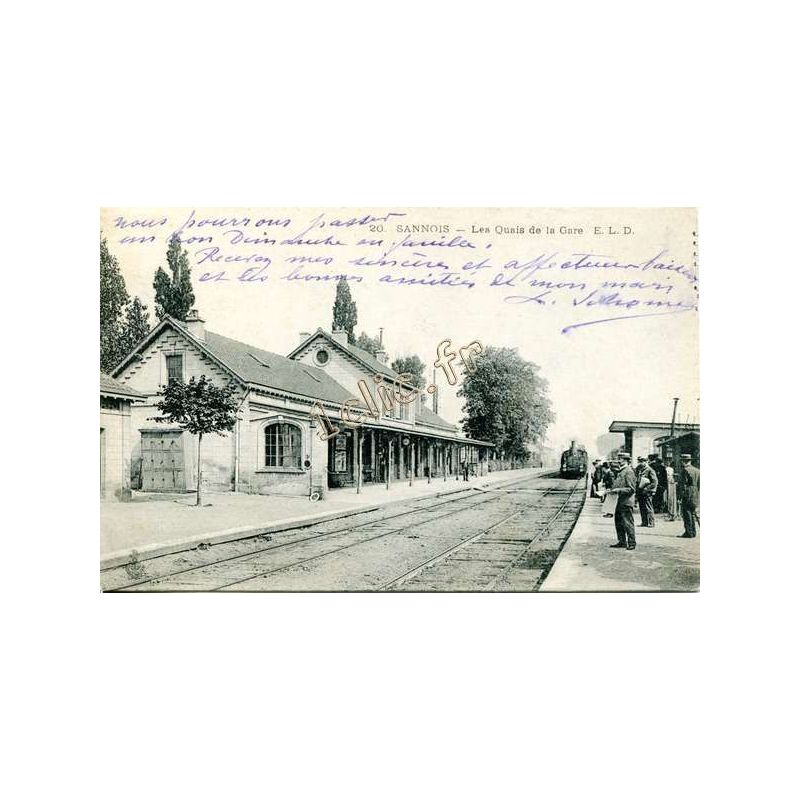 nous pourrons passer
20. SANNOIS — Les Quais de la Gare E. L. D.
un bon Dimanche en famille.
Recevez mes sincères et affectueux baisers
et les bonnes amitiés de mon mari
1clic.fr